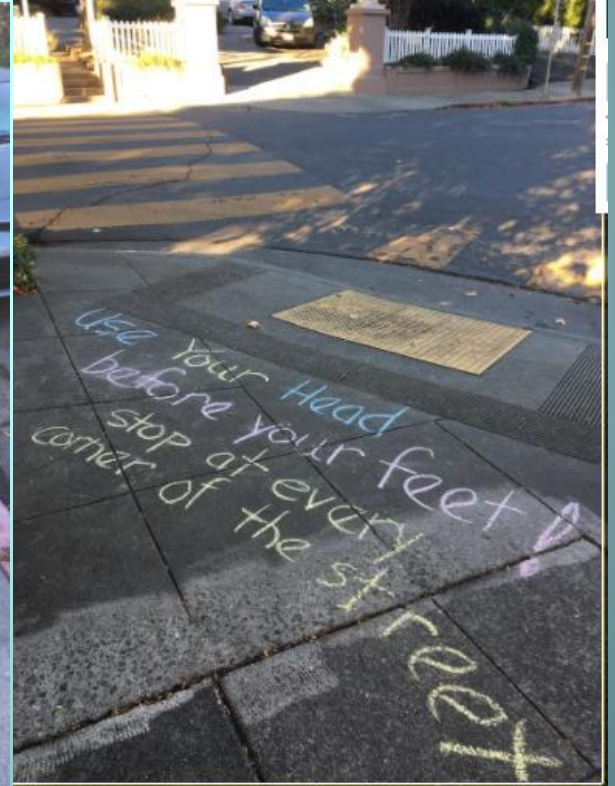 Use Your Head
before your feet!
stop at every
corner of the street